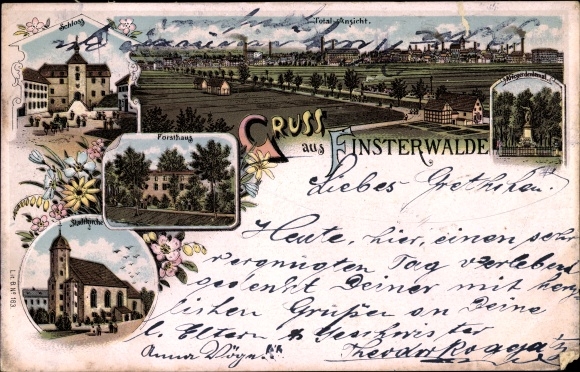 Schloss
Total-Ansicht.
Kriegerdenkmal
Forsthaus
GRUSS
aus FINSTERWALDE
Stadtkirche
Lit. B. No 183
Liebes Grethchen.
Heute, hier, einen sehr
vergnügten Tag verlebend
gedenkt Deiner mit herz-
lichen Grüßen an Deine
l. Eltern u Geschwister
Anna Vögel
Theodor